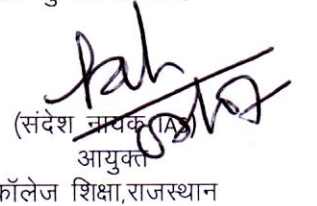 (संदेश नायक IAS)
आयुक्त
कॉलेज शिक्षा,राजस्थान